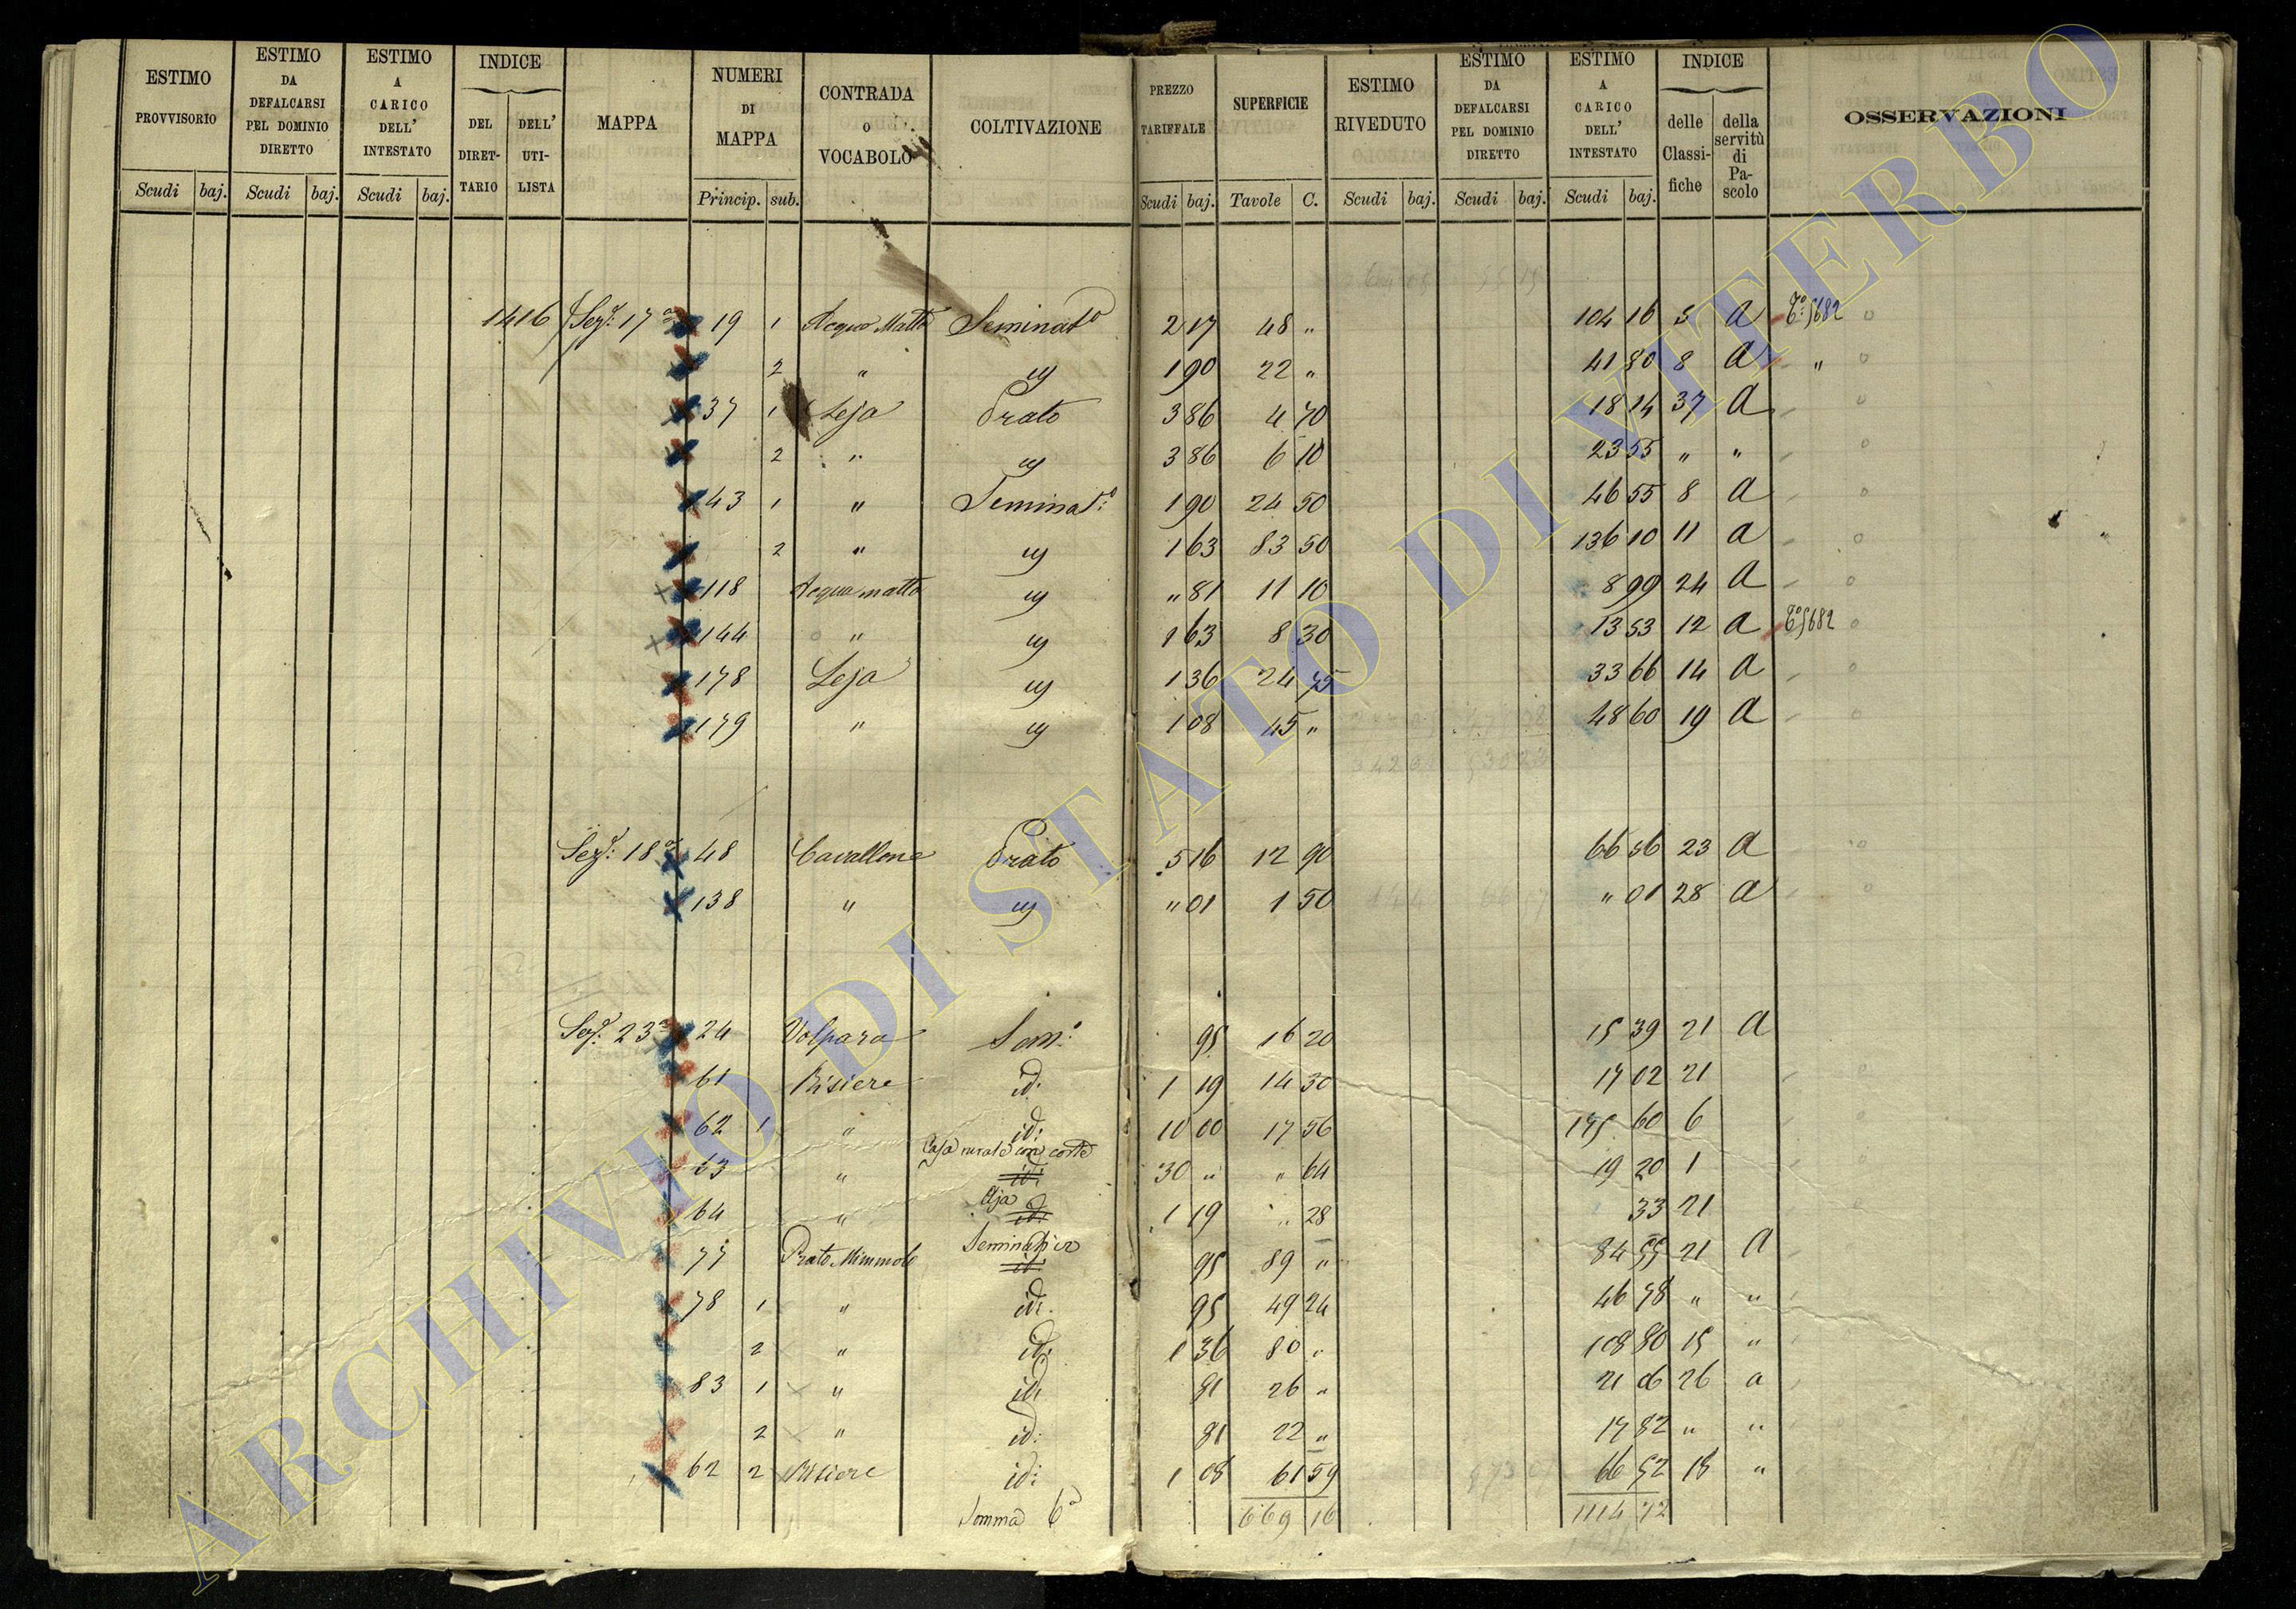 ESTIMO PROVVISORIO | ESTIMO DA DEFALCARSI PEL DOMINIO DIRETTO | ESTIMO A CARICO DELL' INTESTATO | INDICE DEL DIRET-TARIO | DELL' UTI-LISTA | MAPPA | NUMERI DI MAPPA | CONTRADA O VOCABOLO | COLTIVAZIONE | PREZZO TARIFFALE | SUPERFICIE | ESTIMO RIVEDUTO | ESTIMO DA DEFALCARSI PEL DOMINIO DIRETTO | ESTIMO A CARICO DELL' INTESTATO | INDICE delle Classi-fiche | della servitù di Pa-scolo | OSSERVAZIONI
Scudi baj. Scudi baj. Scudi baj. Princip. sub. Scudi baj. Tavole C. Scudi baj. Scudi baj. Scudi baj.
1416 Sez: 17a 19 1 Acqua Matta Seminato 2 17 48 " 104 16 5 A To 5682
2 " id 1 90 22 " 41 80 8 A "
37 1 Leja Prato 3 86 4 70 18 14 37 A
2 " id 3 86 6 10 23 55 " "
43 1 " Seminato: 1 90 24 50 46 55 8 A
2 " id 1 63 83 50 136 10 11 A
118 Acqua matta id " 81 11 10 8 99 24 A
144 " id 1 63 8 30 13 53 12 A To 5682
178 Leja id 1 36 24 75 33 66 14 A
179 " id 1 08 45 " 48 60 19 A
Sez: 18a 48 Cavallone Prato 5 16 12 90 66 56 23 A
138 " id " 01 1 50 " 01 28 A
Sez: 23a 24 Volpara Sem:o 95 16 20 15 39 21 A
61 Risiere id: 1 19 14 30 17 02 21
62 1 " id: 10 00 17 56 175 60 6
63 " Casa rurale con corte id: 30 " " 64 19 20 1
64 " Aja id: 1 19 " 28 33 21
77 Prato Mimmolo id: 95 89 " 84 55 21 A
78 1 " id: 95 49 24 46 78 " "
2 " id: 1 36 80 " 108 80 15 "
83 1 " id: 81 26 " 21 06 26 a
2 " id: 81 22 " 17 82 " "
62 2 Risiere id: 1 08 61 59 66 52 18 "
Somma 6a 669 16 1114 72
ARCHIVIO DI STATO DI VITERBO